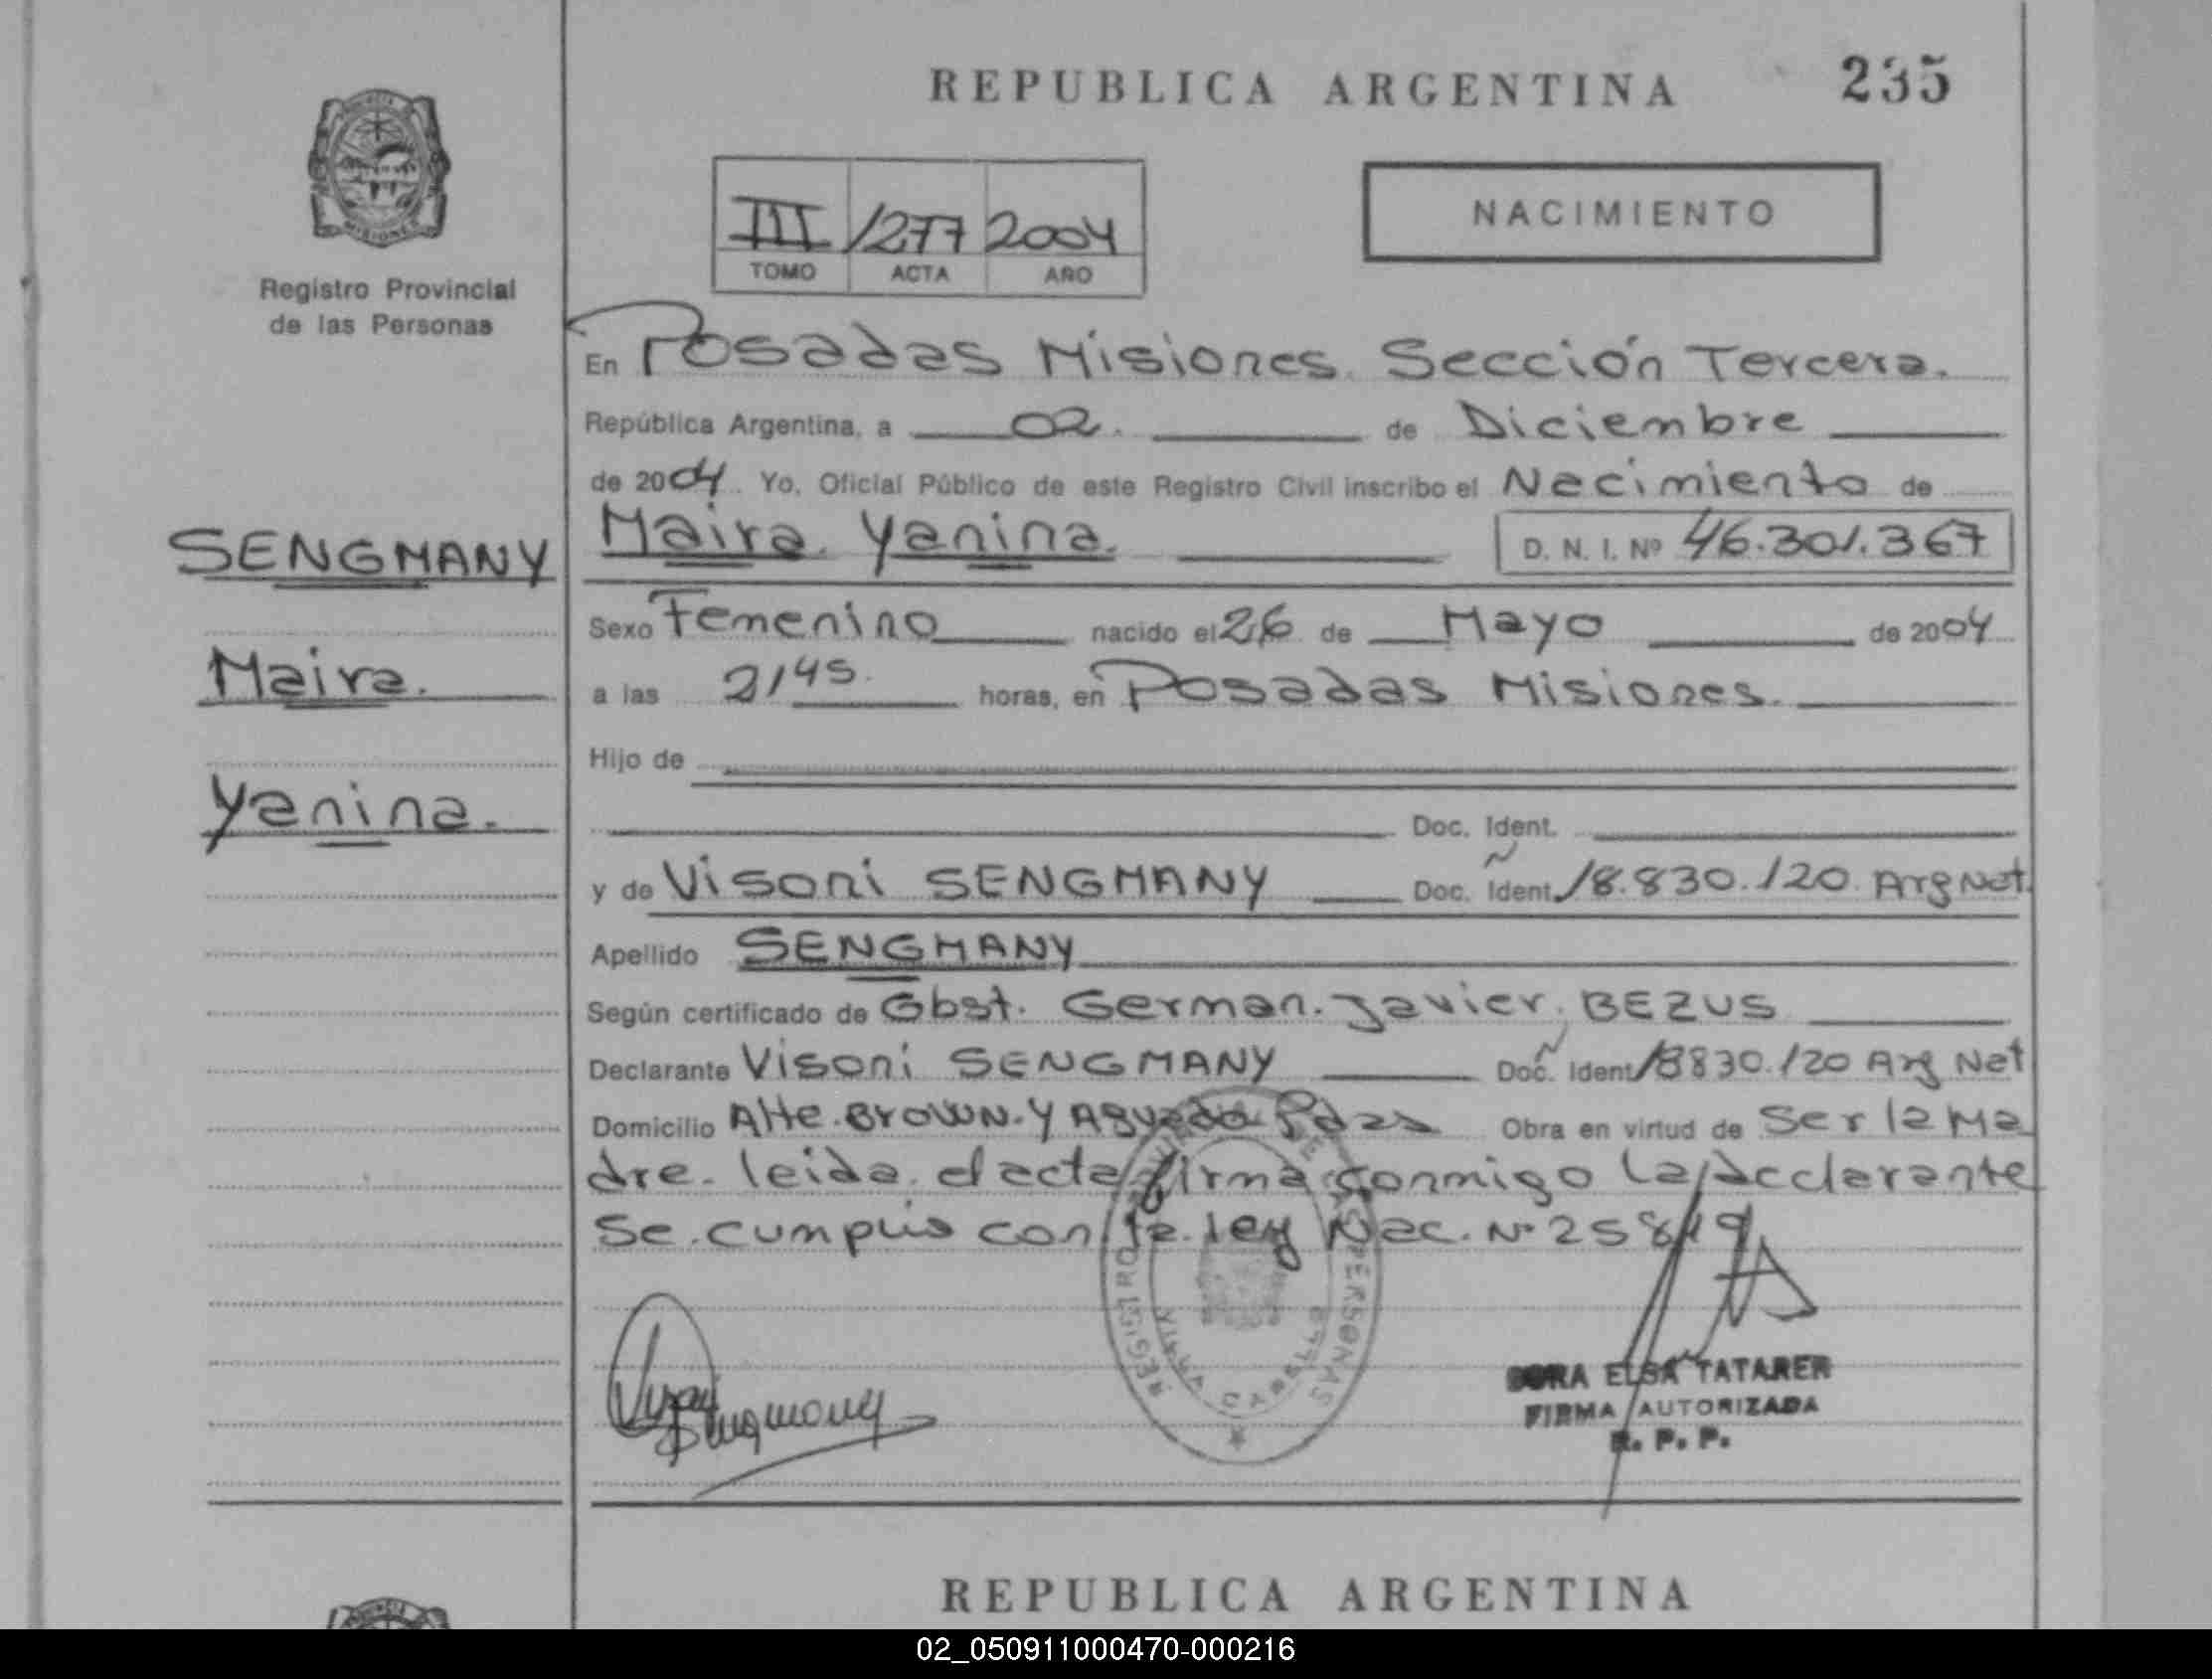 REPUBLICA ARGENTINA 235
III 1277 2004
TOMO ACTA AÑO
NACIMIENTO
Registro Provincial
de las Personas
En Posadas Misiones. Sección Tercera.
República Argentina, a 02. de Diciembre
de 2004. Yo, Oficial Público de este Registro Civil inscribo el Nacimiento de
SENGMANY
Maira. Yanina. D. N. I. Nº 46.301.367
Sexo Femenino nacido el 26 de Mayo de 2004
Maira.
a las 2145. horas, en Posadas Misiones.
Hijo de
Yanina.
Doc. Ident.
y de Visoni SENGMANY Doc. Ident. 18.830.120. Arg Nat.
Apellido SENGMANY
Según certificado de Obst. German. Javier. BEZUS
Declarante Visoni SENGMANY Doc. Ident. 18830.120 Arg Nat
Domicilio Alte. BROWN. Y Obra en virtud de Ser la Ma
dre. leida. el acta firma conmigo la declarante
Se. cumplio con la. ley Nac. Nº 25819
REGISTRO PERSONAS
VILLA CABELLO
Sengmany
DORA ELSA TATARER
FIRMA AUTORIZADA
R. P. P.
REPUBLICA ARGENTINA
02_050911000470-000216